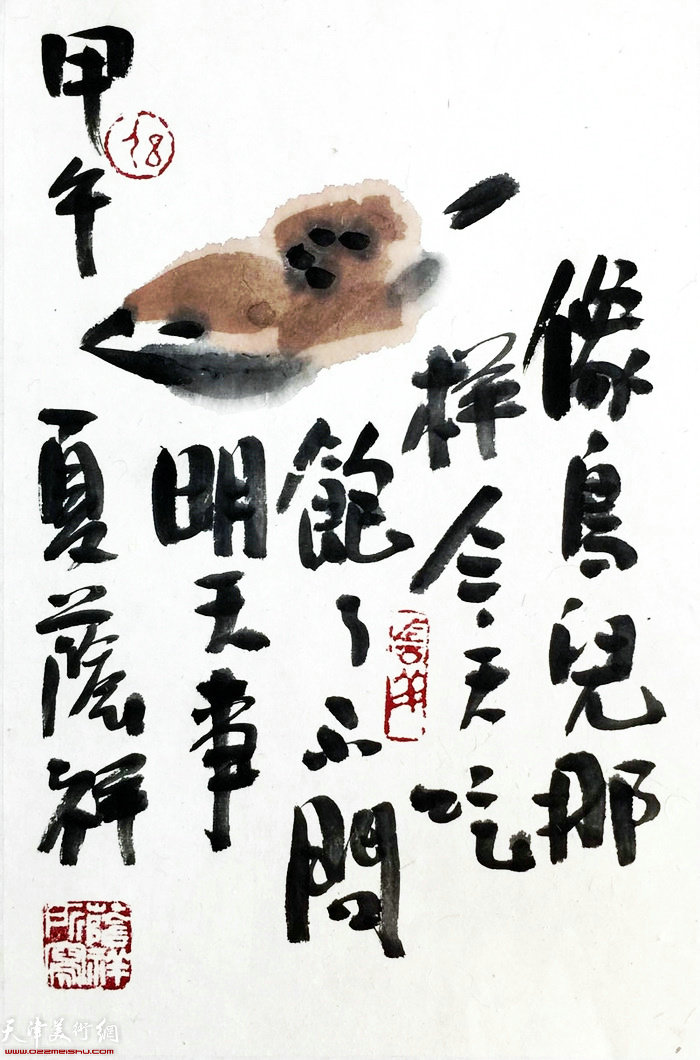 像鳥兒那
樣今天吃
飽了不問
明天事
甲午
夏蔭祥
蔭祥所寫
天津美術網
www.022meishu.com